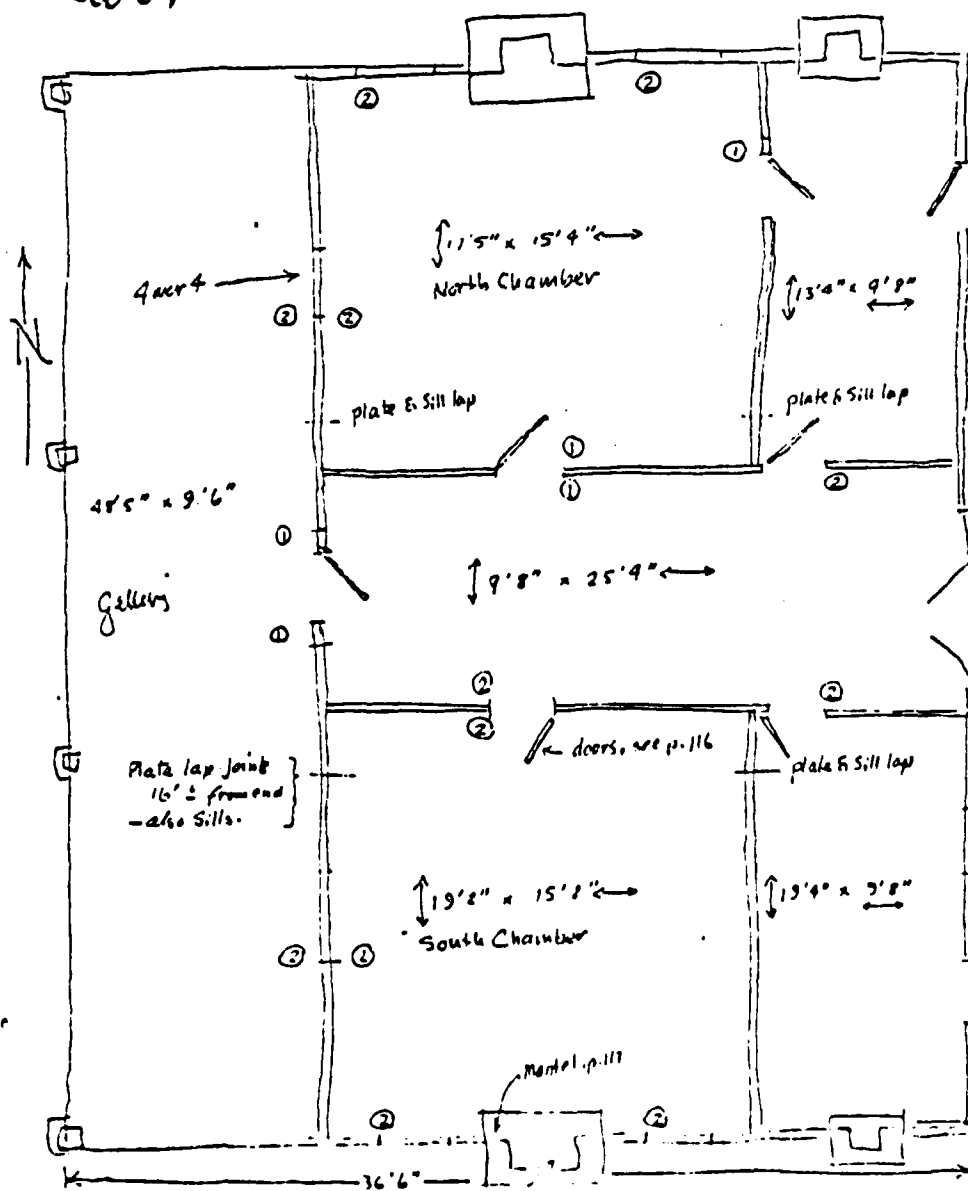 ②
②
①
17'5" x 15'4"
North Chamber
4 over 4
13'4" x 9'8"
N
② ②
plate & Sill lap
plate & Sill lap
①
①
②
48'5" x 9'6"
①
9'8" x 25'4"
Gallery
①
②
②
②
doors, see p. 116
Plate lap joint
16' ± from end
- also Sills.
plate & Sill lap
19'8" x 15'8"
South Chamber
19'4" x 9'8"
② ②
Mantel, p. 117
②
②
36'6"